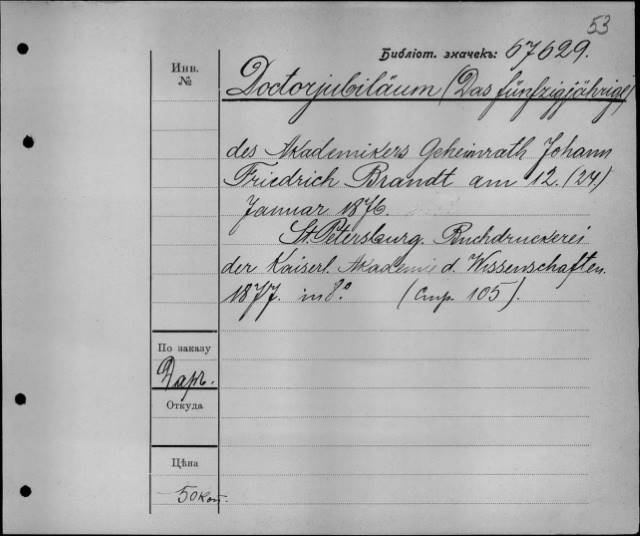 53
Библіот. значекъ: 67629.
Инв.
№
Doctorjubiläum (Das fünfzigjährige)
des Akademikers Geheimrath Johann
Friedrich Brandt am 12. (24.)
Januar 1876.
St. Petersburg. Buchdruckerei
der Kaiserl. Akademie d. Wissenschaften.
1877. in 8.° (стр. 105).
По заказу
Даръ.
Откуда
Цѣна
50 коп.